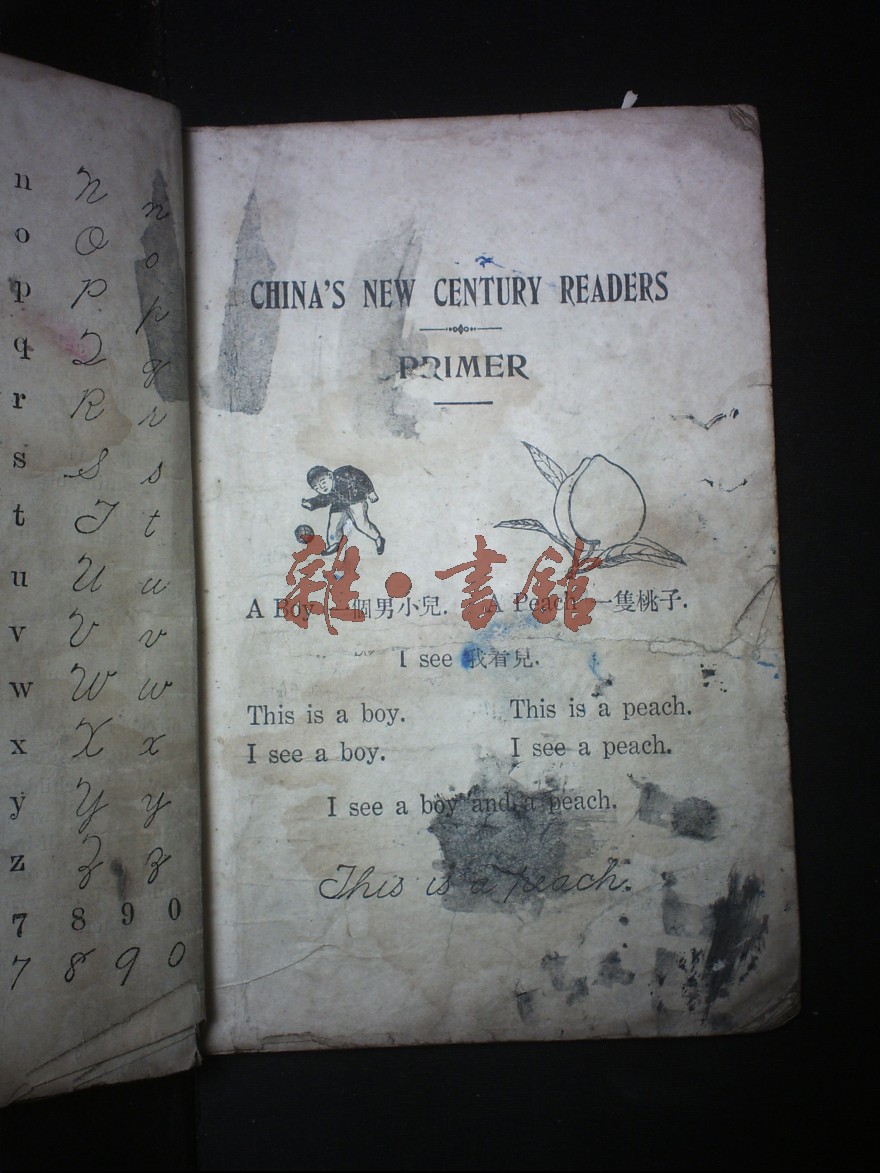 n N n
o O o
p P p
q Q q
r R r
s S s
t T t
u U u
v V v
w W w
x X x
y Y y
z Z z
7 8 9 0
7 8 9 0
CHINA'S NEW CENTURY READERS
PRIMER
A Boy 一個男小兒. A Peach 一隻桃子.
I see 我看見.
This is a boy. This is a peach.
I see a boy. I see a peach.
I see a boy and a peach.
This is a peach.
雜·書館